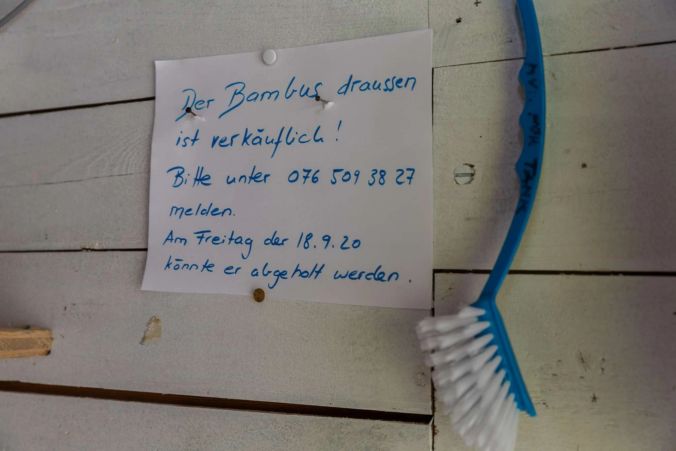 Der Bambus draussen
ist verkäuflich!
Bitte unter 076 509 38 27
melden.
Am Freitag der 18.9.20
könnte er abgeholt werden.